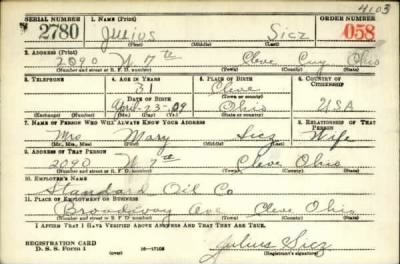 4103
SERIAL NUMBER 1. NAME (Print) ORDER NUMBER
2780 Julius Sicz 058
(First) (Middle) (Last)
2. ADDRESS (Print)
2090 W 7th Cleve Cuy Ohio
(Number and street or R. F. D. number) (Town) (County) (State)
3. TELEPHONE 4. AGE IN YEARS 5. PLACE OF BIRTH 6. COUNTRY OF CITIZENSHIP
31 Cleve
DATE OF BIRTH (Town or county)
April 23 - 09 Ohio USA
(Exchange) (No.) (Mo.) (Day) (Yr.) (State or country)
7. NAME OF PERSON WHO WILL ALWAYS KNOW YOUR ADDRESS 8. RELATIONSHIP OF THAT PERSON
Mrs Mary Sicz Wife
(Mr., Mrs., Miss) (First) (Middle) (Last)
9. ADDRESS OF THAT PERSON
2090 W 7th Cleve Ohio
(Number and street or R. F. D. number) (Town) (County) (State)
10. EMPLOYER'S NAME
Standard Oil Co
11. PLACE OF EMPLOYMENT OR BUSINESS
Broadway Ave Cleve Ohio
(Number and street or R. F. D. number) (Town) (County) (State)
I AFFIRM THAT I HAVE VERIFIED ABOVE ANSWERS AND THAT THEY ARE TRUE.
REGISTRATION CARD
D. S. S. Form 1 16-17105 Julius Sicz
(Registrant's signature)